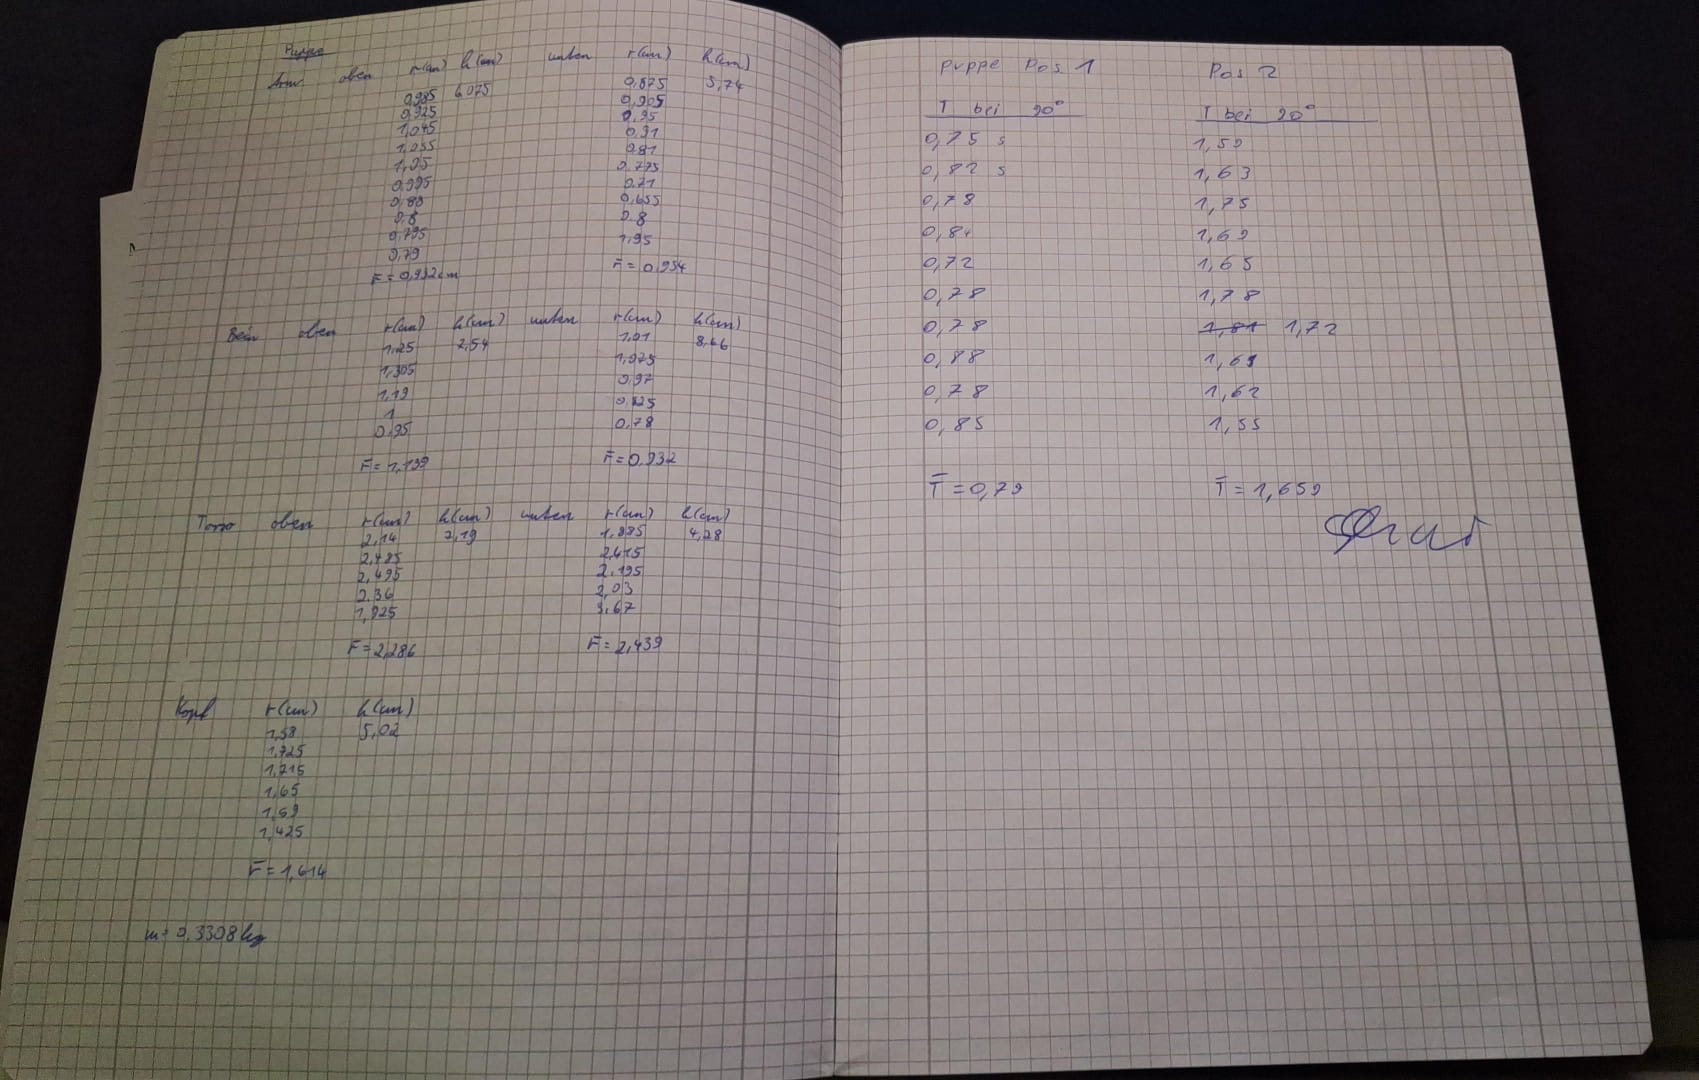 Puppe
Arm oben r(cm) h(cm) unten r(cm) h(cm)
0,985 6,075 0,875 5,74
0,925 0,905
1,045 0,95
1,055 0,91
1,05 0,81
0,995 0,775
0,88 0,71
0,8 0,655
0,795 0,8
0,79 1,95
r̄ = 0,932cm r̄ = 0,934
Bein oben r(cm) h(cm) unten r(cm) h(cm)
1,25 7,54 1,01 8,66
1,305 1,075
1,19 0,97
1 0,825
0,95 0,78
r̄ = 1,139 r̄ = 0,932
Torso oben r(cm) h(cm) unten r(cm) h(cm)
2,14 7,19 1,885 4,28
2,485 2,415
2,495 2,195
2,36 2,03
1,925 3,67
r̄ = 2,286 r̄ = 2,439
Kopf r(cm) h(cm)
1,58 5,02
1,725
1,715
1,65
1,59
1,425
r̄ = 1,614
m = 0,3308 kg
puppe Pos 1
T bei 90°
0,75 s
0,82 s
0,78
0,84
0,72
0,78
0,78
0,88
0,78
0,85
T̄ = 0,79
Pos 2
T bei 90°
1,59
1,63
1,75
1,69
1,65
1,78
1,81 1,72
1,61
1,62
1,55
T̄ = 1,659